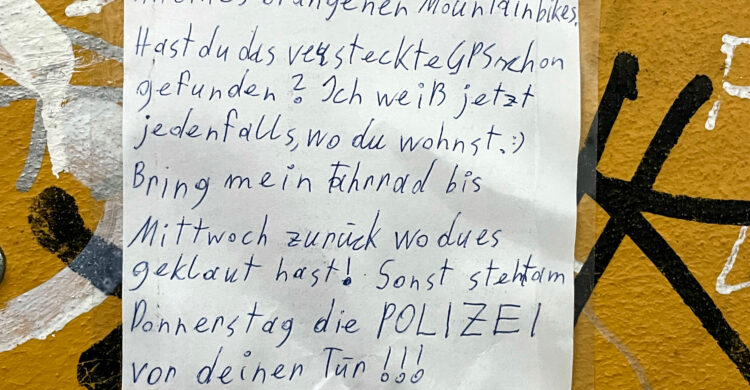 orangenen Mountainbikes.
Hast du das versteckte GPS schon
gefunden? Ich weiß jetzt
jedenfalls, wo du wohnst. :)
Bring mein Fahrrad bis
Mittwoch zurück wo du es
geklaut hast! Sonst steht am
Donnerstag die POLIZEI
vor deiner Tür!!!